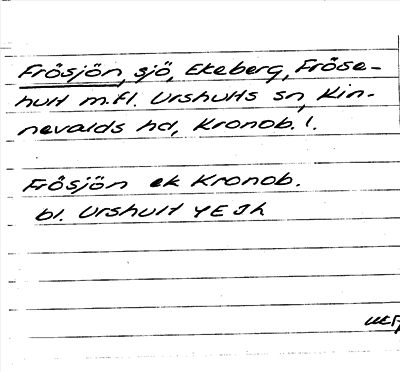 Frösjön, sjö, Ekeberg, Fröse-
hult m.fl. Urshults sn, Kin-
nevalds hd, Kronob. l.
Frösjön ek Kronob.
bl. Urshult YE Jh